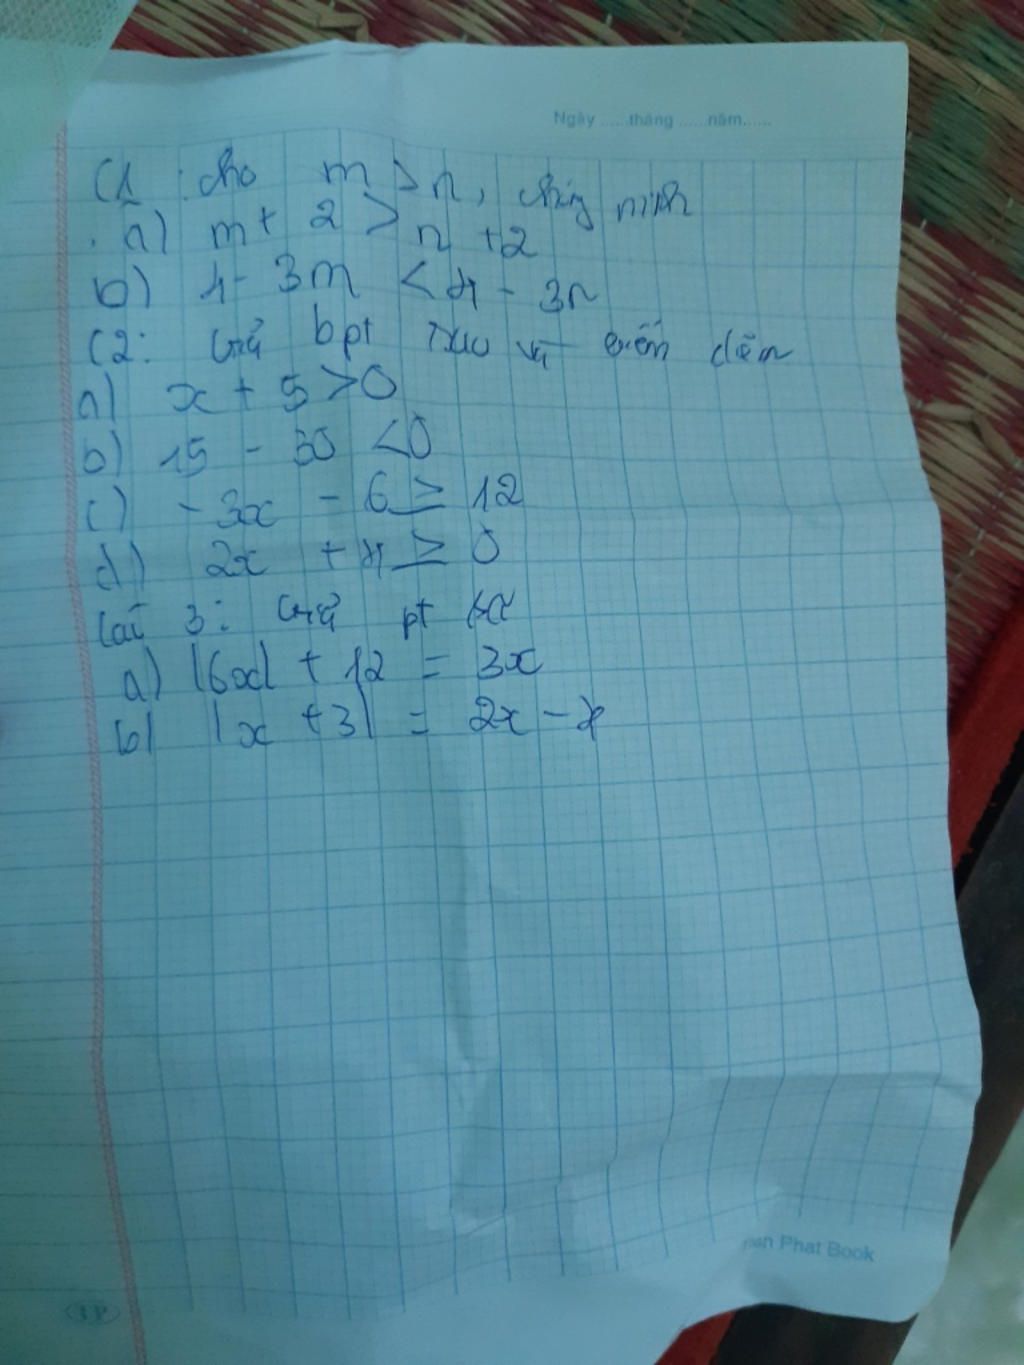 Ngày ......tháng ......năm......
C1 : cho m > n, chứng minh
a) m + 2 > n + 2
b) 4 - 3m < 4 - 3n
C2: Giải bpt sau và biểu diễn
a) x + 5 > 0
b) 15 - 30 < 0
c) - 3x - 6 ≥ 12
d) 2x + 4 ≥ 0
Câu 3: Giải pt
a) |6x| + 12 = 3x
b) |x + 3| = 2x -
Phat Book